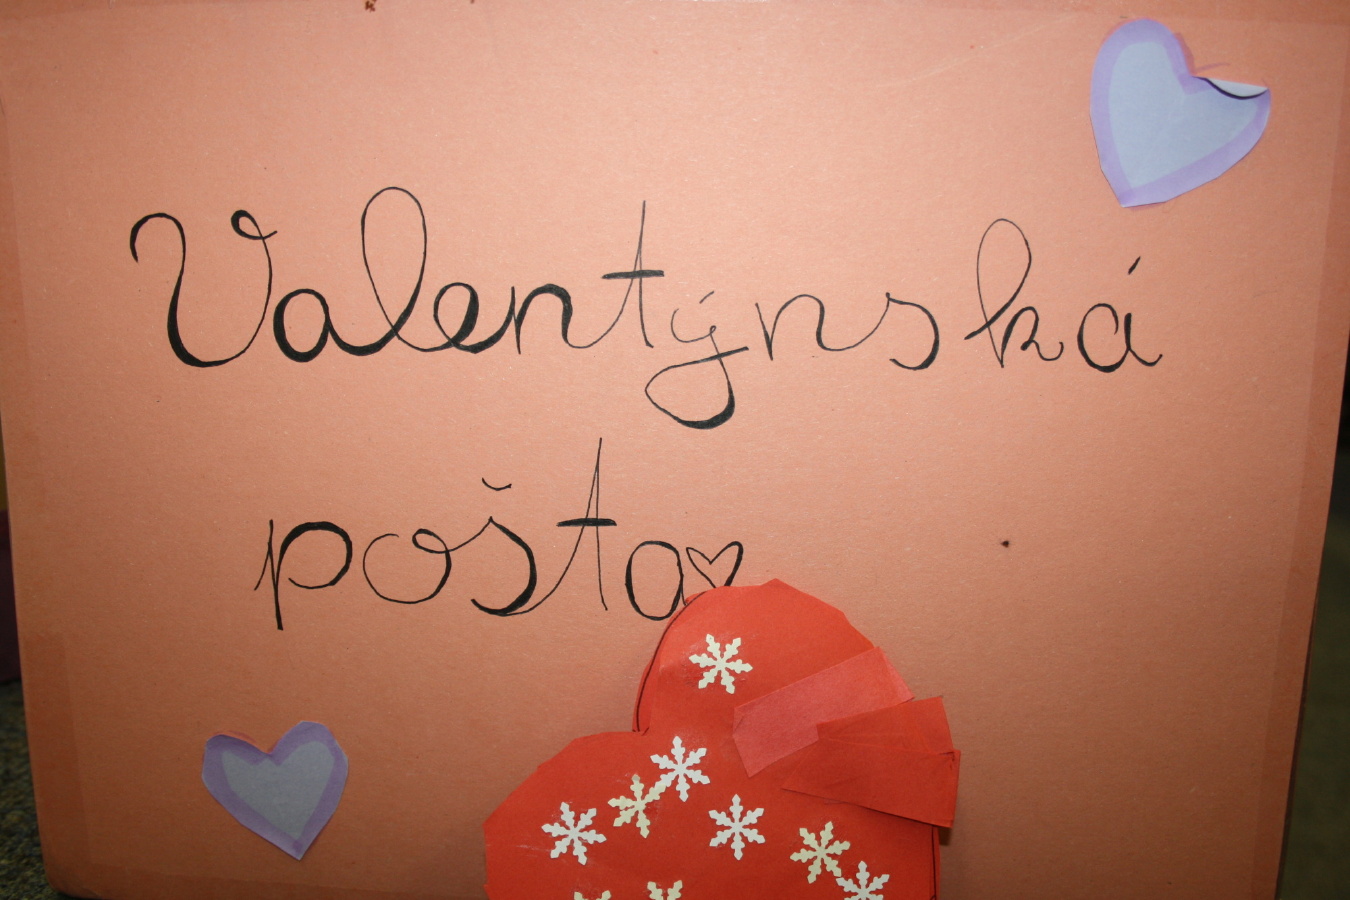 Valentýnská
pošta♡